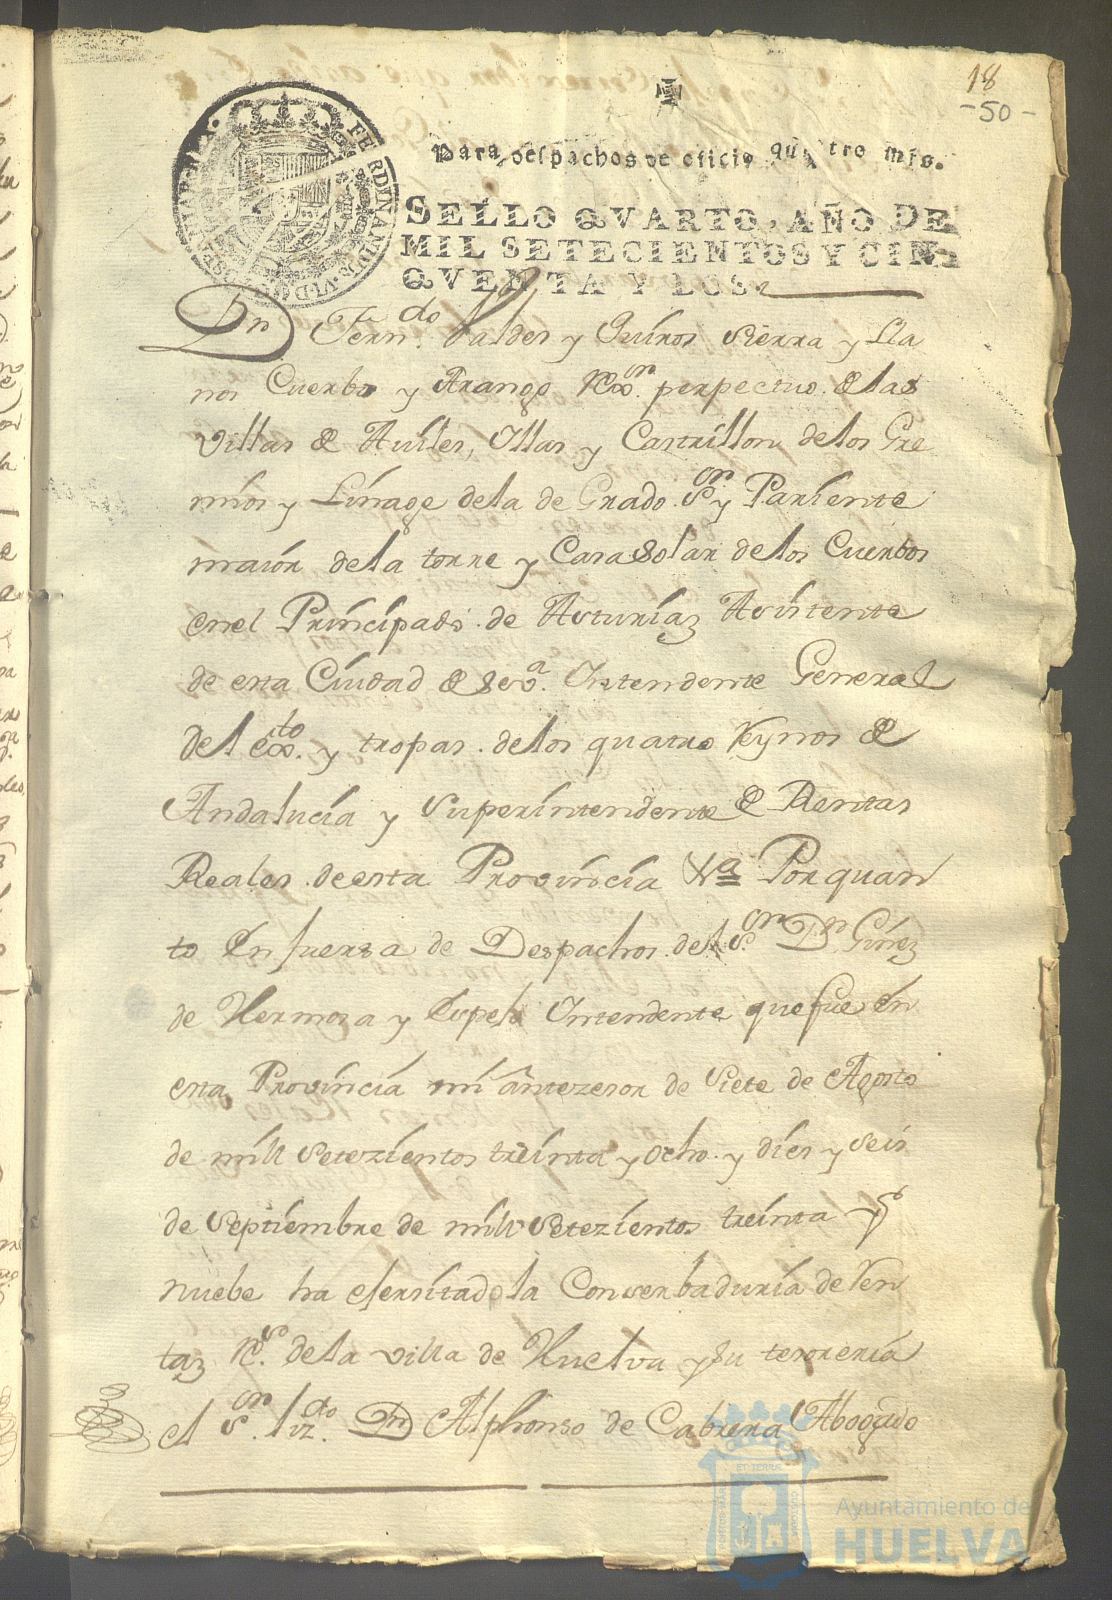 18
-50-
Para despachos de oficio quatro mrs.
SELLO QVARTO, AÑO DE
MIL SETECIENTOS Y CIN
QVENTA Y DOS.
FERDINANDUS.VI.D.G.
HISPANIAR.REX.
Dn Ferndo. Valdes y Quiros Sierra y Lla
nos Cuerbo y Arango Rexor. perpectuo de las
Villas de Aviles, Yllas y Castrillon de los Gre
mios y Linage dela de Grado Sor. y Pariente
maior dela torre y Casa Solar delos Cuerbos
enel Principado de Asturias Asistente
de esta Ciudad de Seva. Intendente General
del exto. y tropas delos quatro Reynos de
Andalucia y Superintendente de Rentas
Reales de esta Provincia Xa Por quan
to En fuerza de Despachos del Sor. Dn Ginez
de Hermosa y Espejo Intendente que fue En
esta Provincia mi antezesor de Siete de Agosto
de mill Setezientos treinta y ocho y dies y seis
de Septiembre de mill Setezientos treinta y
nuebe ha ejersitado la Conserbaduria de Ren
taz Rs. dela villa de Huelva y su tesoreria
el Sor. lizdo. Dn Alphonso de Cabrera Abogado
Ayuntamiento de
HUELVA